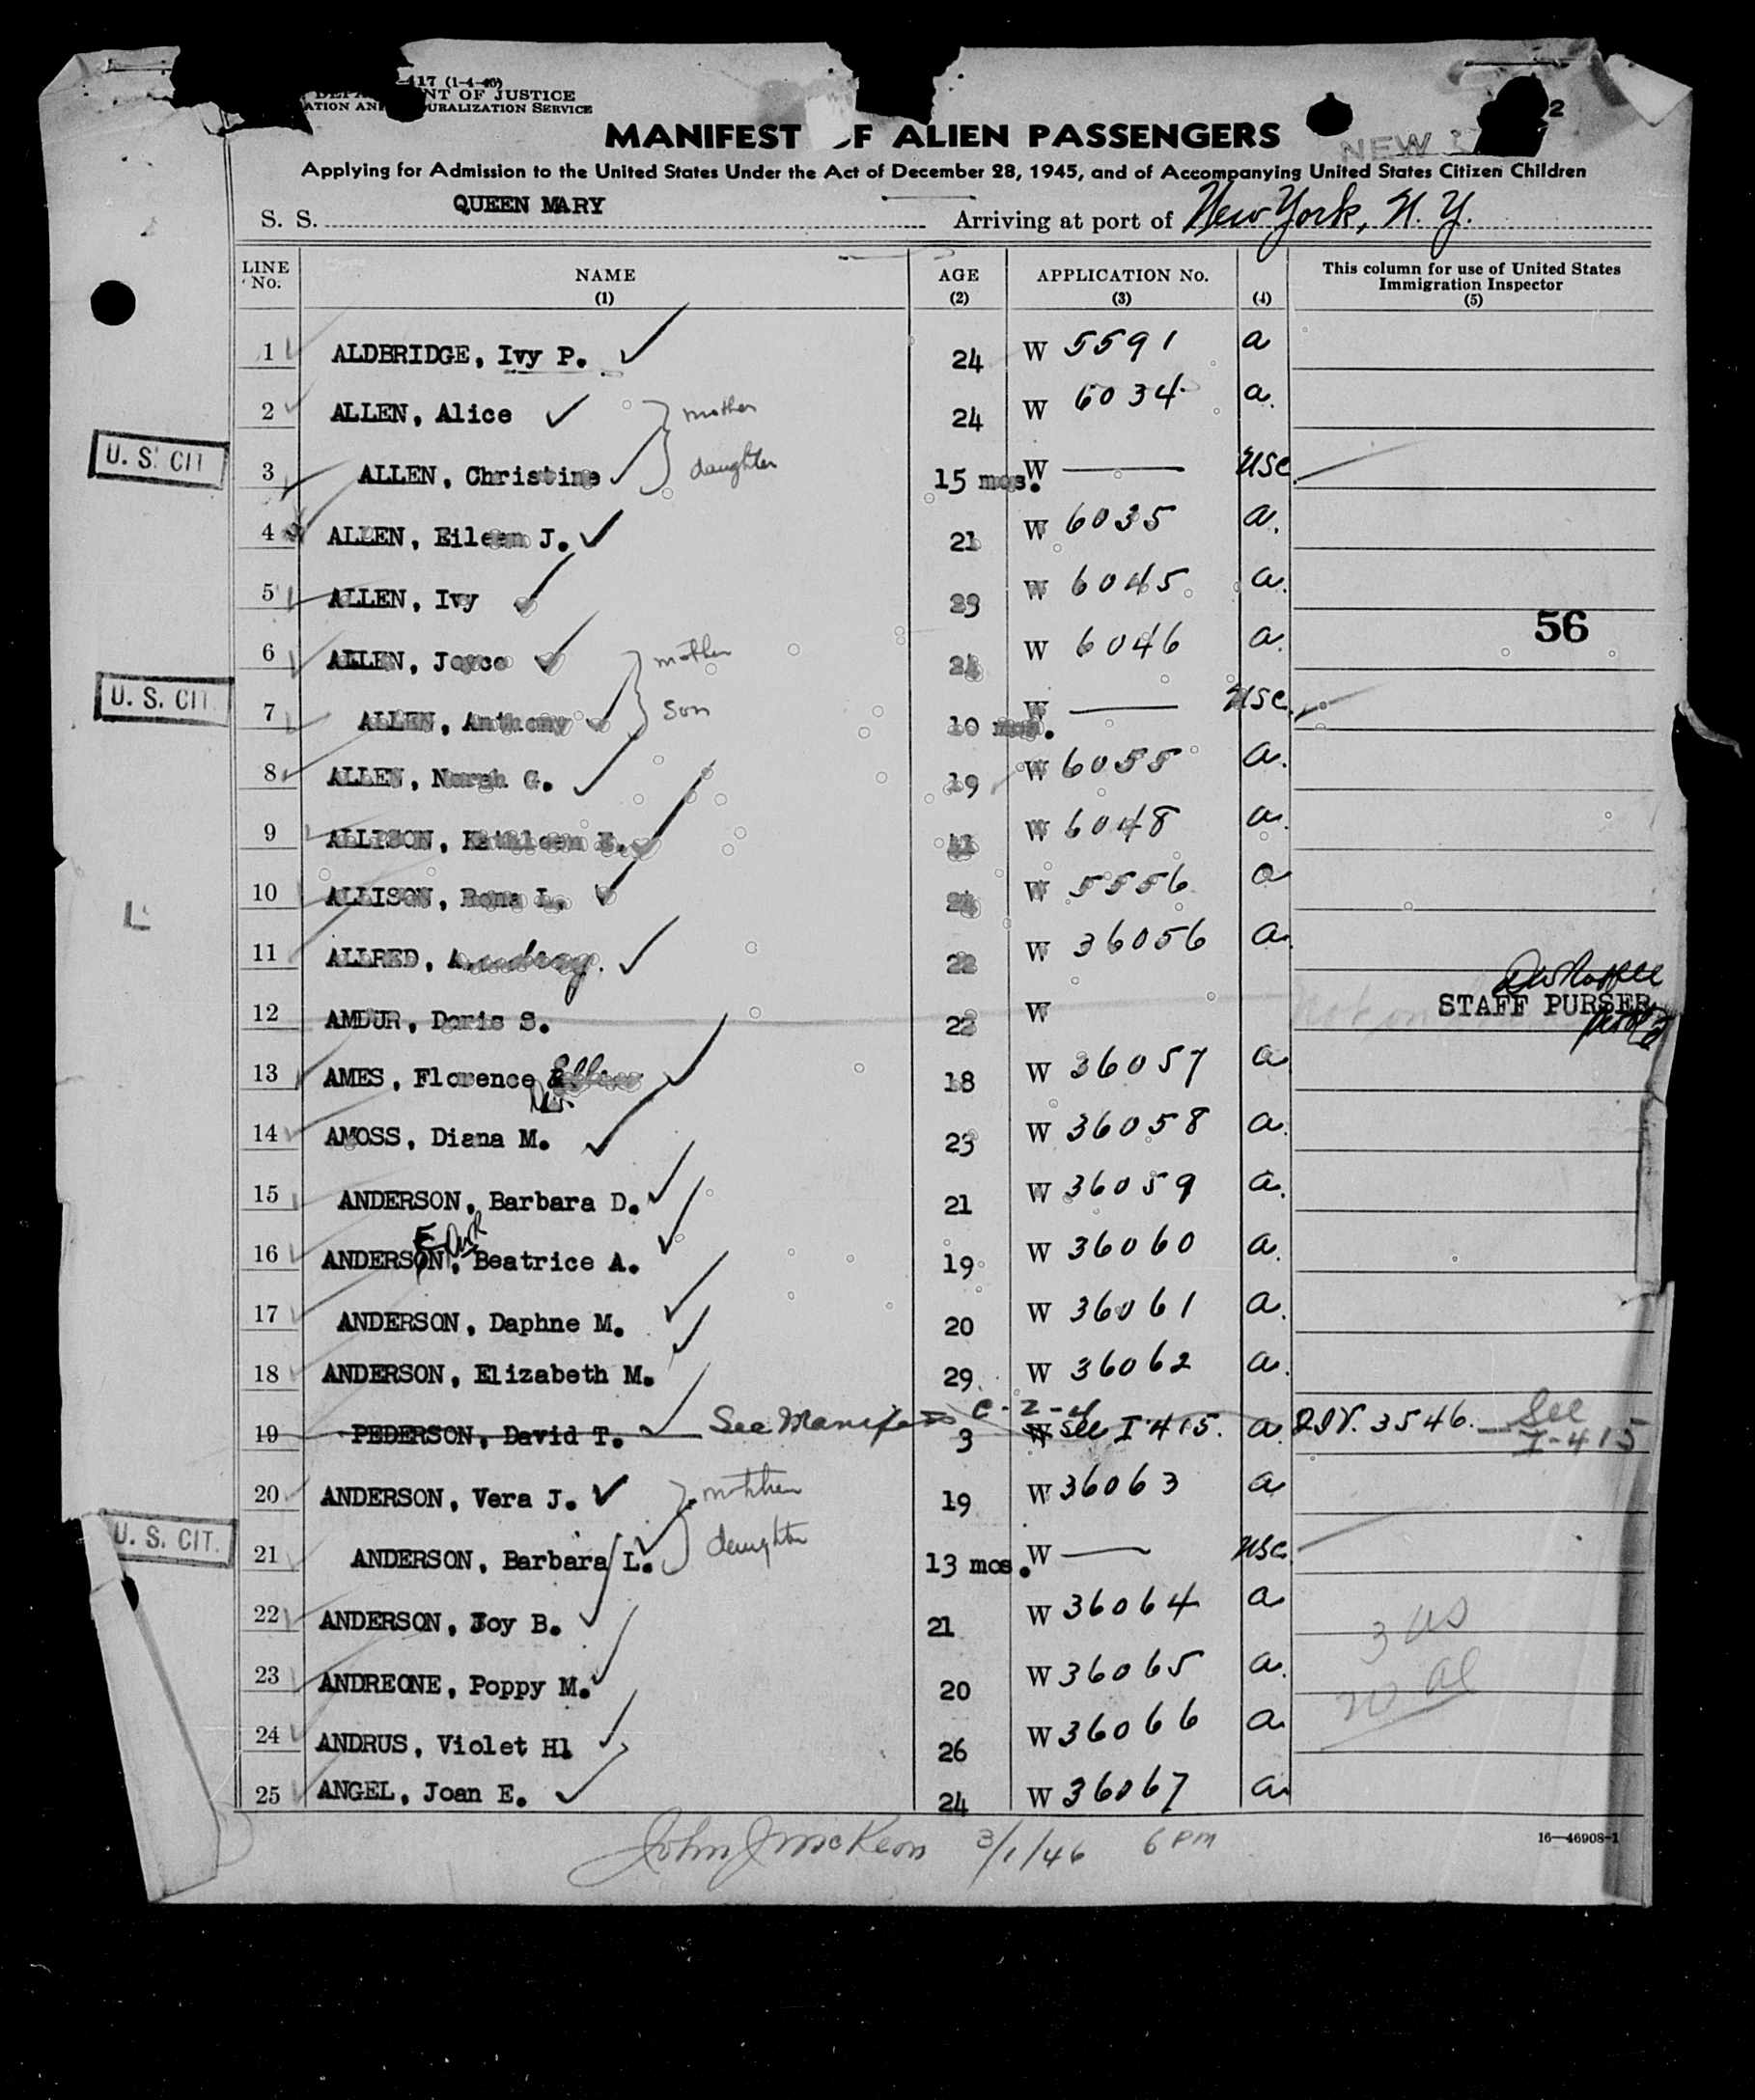 417 (1-4-46)
NT OF JUSTICE
ATION AN URALIZATION SERVICE
2
MANIFEST OF ALIEN PASSENGERS
NEW
Applying for Admission to the United States Under the Act of December 28, 1945, and of Accompanying United States Citizen Children
S. S. QUEEN MARY Arriving at port of New York, N. Y.
LINE No. NAME (1) AGE (2) APPLICATION No. (3) (4) This column for use of United States Immigration Inspector (5)
1 ALDBRIDGE, Ivy P. 24 W 5591 a
2 ALLEN, Alice mother 24 W 6034 a.
U. S. CIT
3 ALLEN, Christine daughter 15 mos. W USC
4 ALLEN, Eileen J. 21 W 6035 a.
5 ALLEN, Ivy 23 W 6045 a.
56
6 ALLEN, Joyce mother 24 W 6046 a.
U. S. CIT
7 ALLEN, Anthony Son 10 mos. W USC.
8 ALLEN, Norah G. 19 W 6055 a.
9 ALLISON, Kathleen E. W 6048 a.
10 ALLISON, Rona L. 24 W 5556 a
11 ALLRED, Audrey. 22 W 36056 a.
STAFF PURSER
12 AMDUR, Doris S. 22 W Not on
13 AMES, Florence Ellen 18 W 36057 a
14 AMOSS, Diana M. 23 W 36058 a.
15 ANDERSON, Barbara D. 21 W 36059 a.
16 ANDERSON, Beatrice A. 19 W 36060 a.
E
17 ANDERSON, Daphne M. 20 W 36061 a.
18 ANDERSON, Elizabeth M. 29 W 36062 a.
19 PEDERSON, David T. See Manifest C-2-4 3 W See I 415. a QIV. 3546. See I-415
20 ANDERSON, Vera J. mother 19 W 36063 a
U. S. CIT.
21 ANDERSON, Barbara L. daughter 13 mos. W USC
22 ANDERSON, Joy B. 21 W 36064 a
3 US
23 ANDREONE, Poppy M. 20 W 36065 a.
20 al
24 ANDRUS, Violet Hl 26 W 36066 a
25 ANGEL, Joan E. 24 W 36067 a
John J McKeon 3/1/46 6 PM
16—46908-1